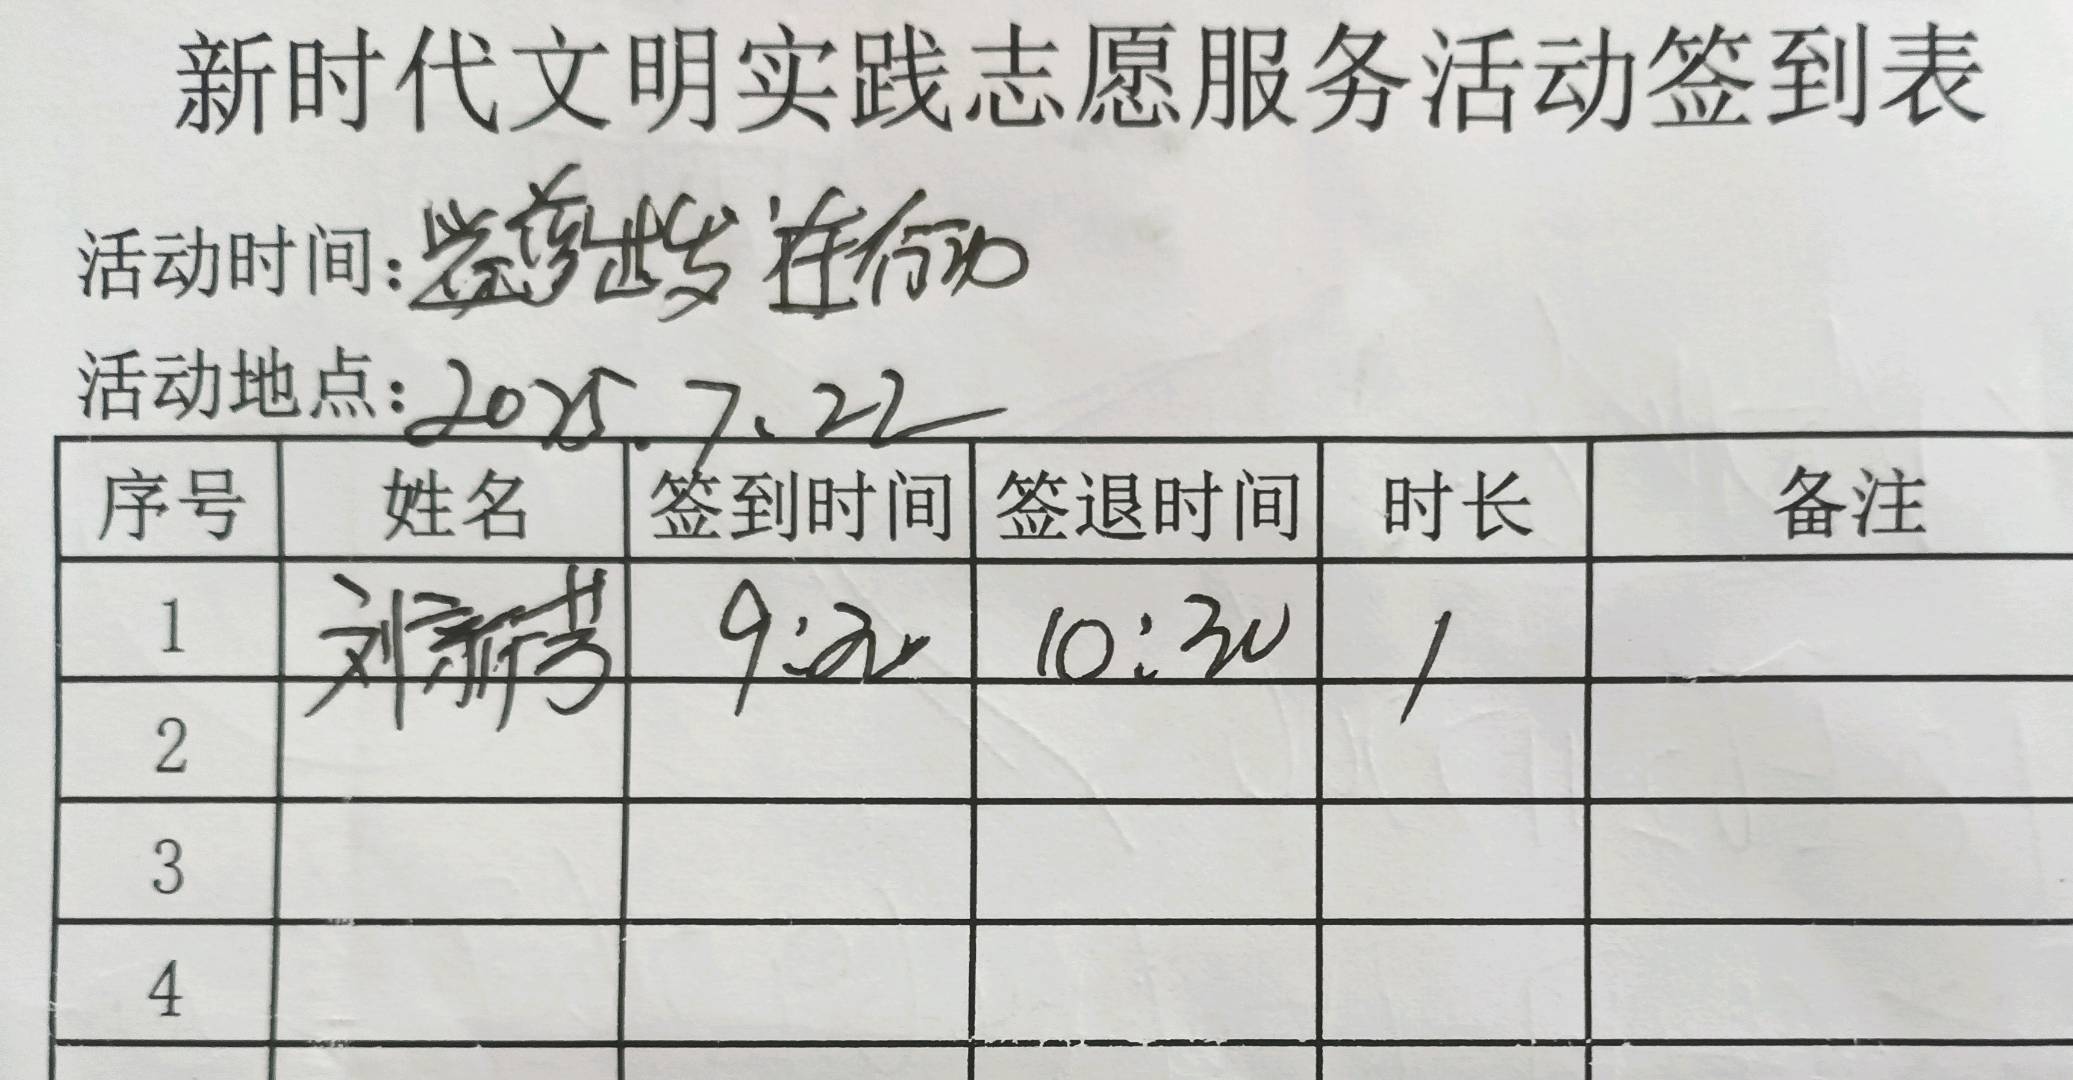 新时代文明实践志愿服务活动签到表
活动时间: 在行动
活动地点: 2025.7.22
序号 姓名 签到时间 签退时间 时长 备注
1 刘新芳 9:30 10:30 1
2
3
4